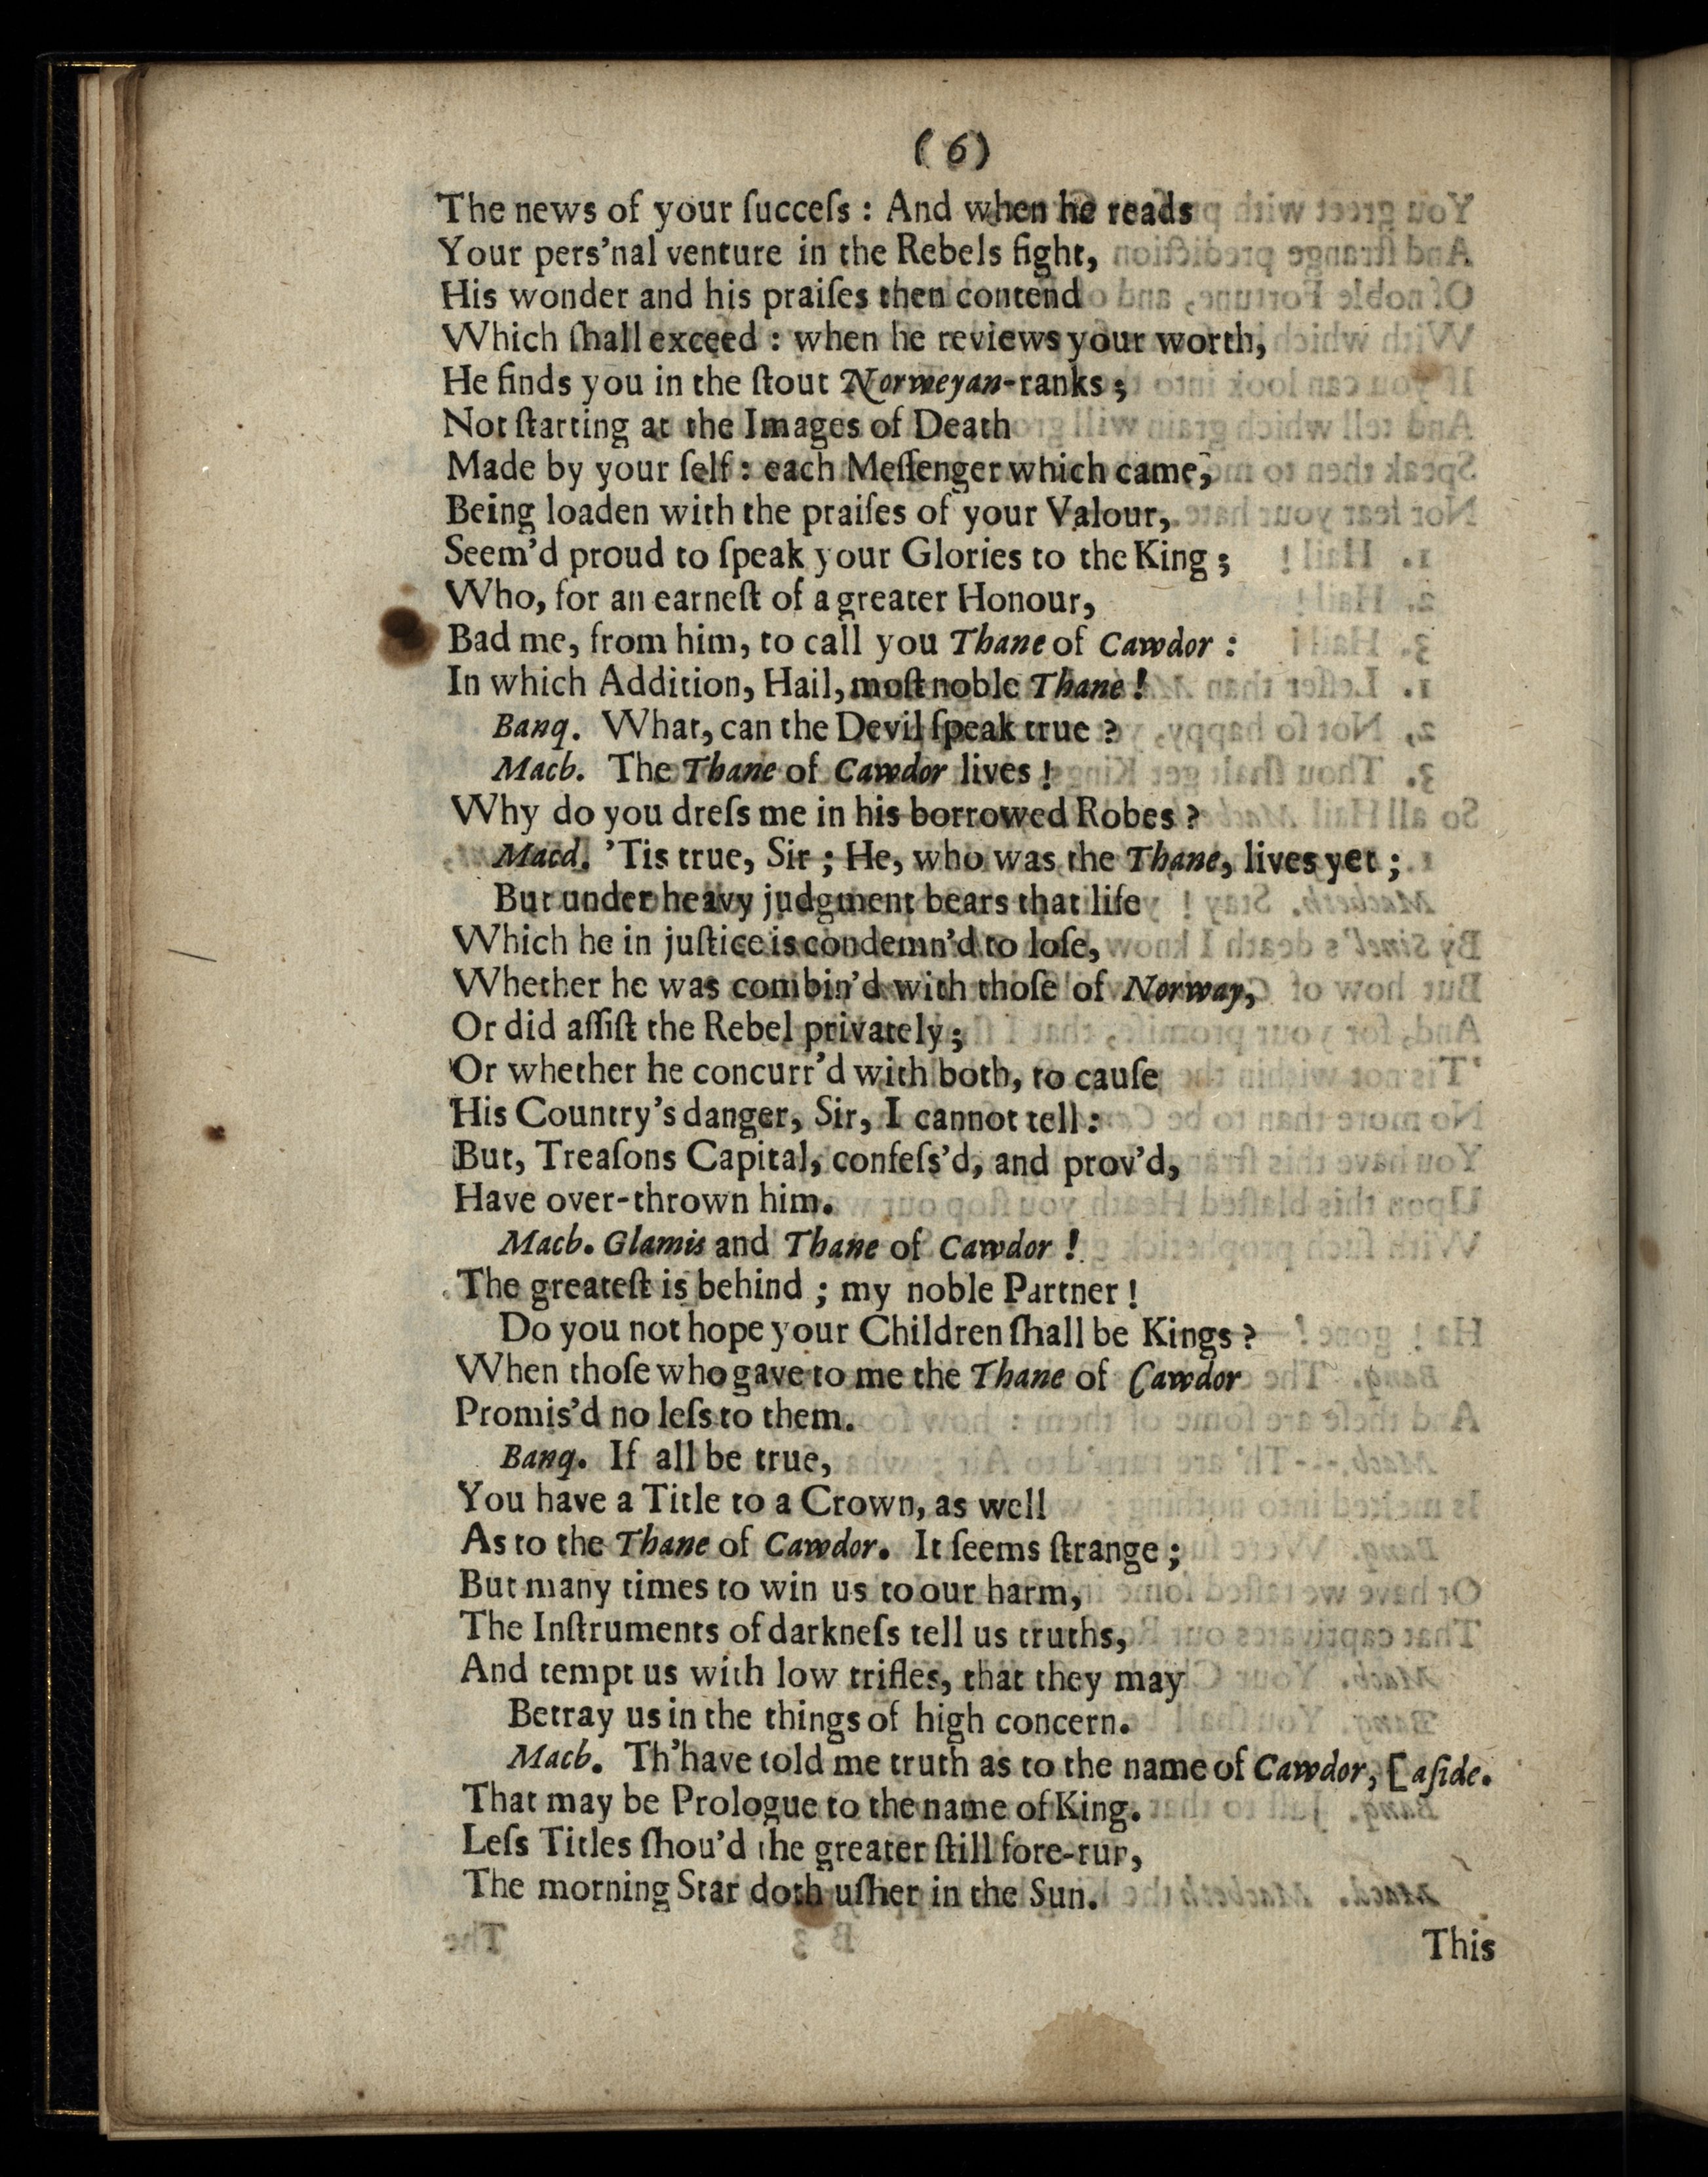 (6)
The news of your ſucceſs : And when he reads
Your pers'nal venture in the Rebels fight,
His wonder and his praiſes then contend
Which ſhall exceed : when he reviews your worth,
He finds you in the ſtout Norweyan-ranks ;
Not ſtarting at the Images of Death
Made by your ſelf : each Meſſenger which came,
Being loaden with the praiſes of your Valour,
Seem'd proud to ſpeak your Glories to the King ;
Who, for an earneſt of a greater Honour,
Bad me, from him, to call you Thane of Cawdor :
In which Addition, Hail, moſt noble Thane !
Banq. What, can the Devil ſpeak true ?
Macb. The Thane of Cawdor lives !
Why do you dreſs me in his borrowed Robes ?
Macd. 'Tis true, Sir ; He, who was the Thane, lives yet ;
But under heavy judgment bears that life
Which he in juſtice is condemn'd to loſe,
Whether he was combin'd with thoſe of Norway,
Or did aſſiſt the Rebel privately ;
Or whether he concurr'd with both, to cauſe
His Country's danger, Sir, I cannot tell :
But, Treaſons Capital, confeſs'd, and prov'd,
Have over-thrown him.
Macb. Glamis and Thane of Cawdor !
The greateſt is behind ; my noble Partner !
Do you not hope your Children ſhall be Kings ?
When thoſe who gave to me the Thane of Cawdor
Promis'd no leſs to them.
Banq. If all be true,
You have a Title to a Crown, as well
As to the Thane of Cawdor. It ſeems ſtrange ;
But many times to win us to our harm,
The Inſtruments of darkneſs tell us truths,
And tempt us with low trifles, that they may
Betray us in the things of high concern.
Macb. Th'have told me truth as to the name of Cawdor, [aſide.
That may be Prologue to the name of King.
Leſs Titles ſhou'd the greater ſtill fore-run,
The morning Star doth uſher in the Sun.
This